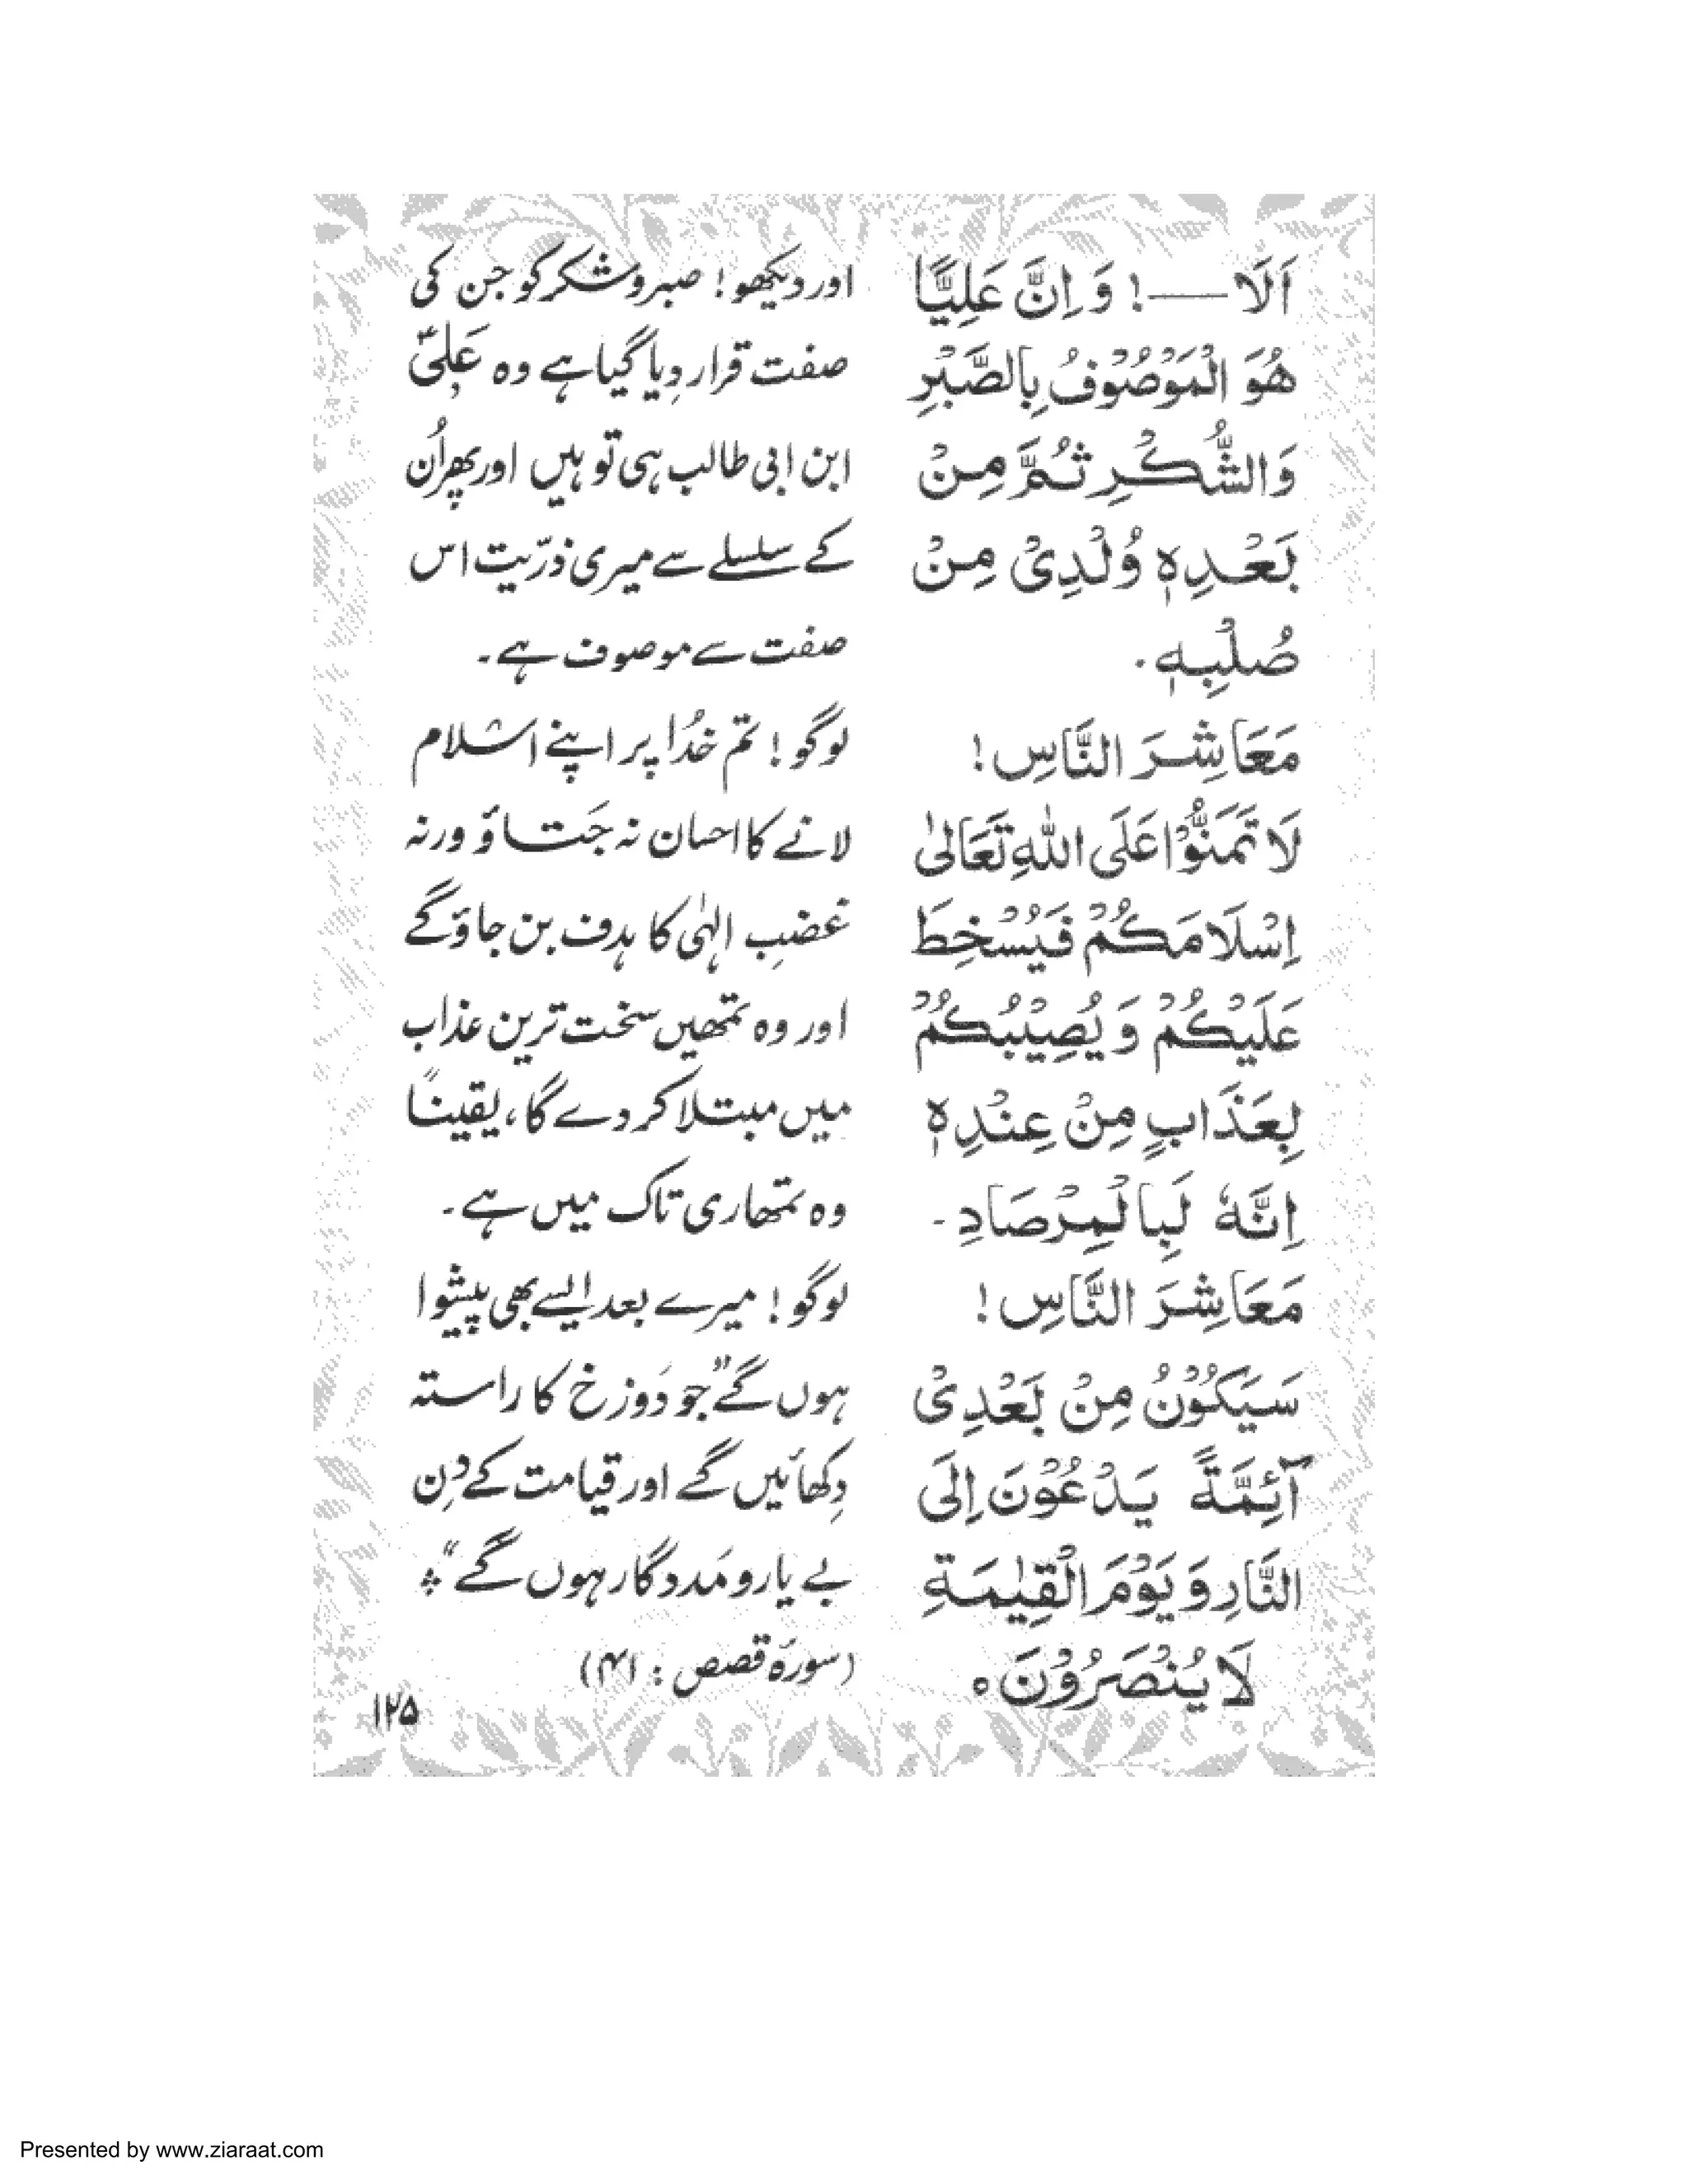 اَلَا——! وَ اِنَّ عَلِيًّا
هُوَ الْمَوْصُوْفُ بِالصَّبْرِ
وَالشُّكْرِ ثُمَّ مِنْ
بَعْدِهٖ وُلْدِىْ مِنْ
صُلْبِهٖ.
مَعَاشِرَ النَّاسِ!
لَا تَمَنُّوْا عَلَى اللّٰهِ تَعَالىٰ
اِسْلَامَكُمْ فَيُسْخِطَ
عَلَيْكُمْ وَ يُصِيْبُكُمْ
بِعَذَابٍ مِنْ عِنْدِهٖ
اِنَّهٗ لَبِالْمِرْصَادِ۔
مَعَاشِرَ النَّاسِ!
سَيَكُوْنُ مِنْ بَعْدِىْ
آئِمَّةً يَدْعُوْنَ اِلَى
النَّارِ وَ يَوْمَ الْقِيٰمَةِ
لَا يُنْصَرُوْنَ ه
اور دیکھو! صبر و شکر کو جن کی
صفت قرار دِیا گیا ہے وہ عَلیؑ
ابن ابی طالب ہی تو ہیں اور پھر اُن
کے سلسلے سے میری ذرّیت اس
صفت سے موصوف ہے۔
لوگو! تم خُدا پر اپنے اسلام
لانے کا احسان نہ جَتاؤ ورنہ
غضبِ الٰہی کا ہدف بن جاؤ گے
اور وہ تمھیں سخت ترین عذاب
میں مبتلا کر دے گا، یقیناً
وہ تمھاری تاک میں ہے۔
لوگو! میرے بعد ایسے بھی پیشوا
ہوں گے "جو دَوزخ کا راستہ
دِکھائیں گے اور قیامت کے دِن
بے یار و مَددگار ہوں گے"
(سورۂ قصص : ۴۱)
۱۲۵
Presented by www.ziaraat.com